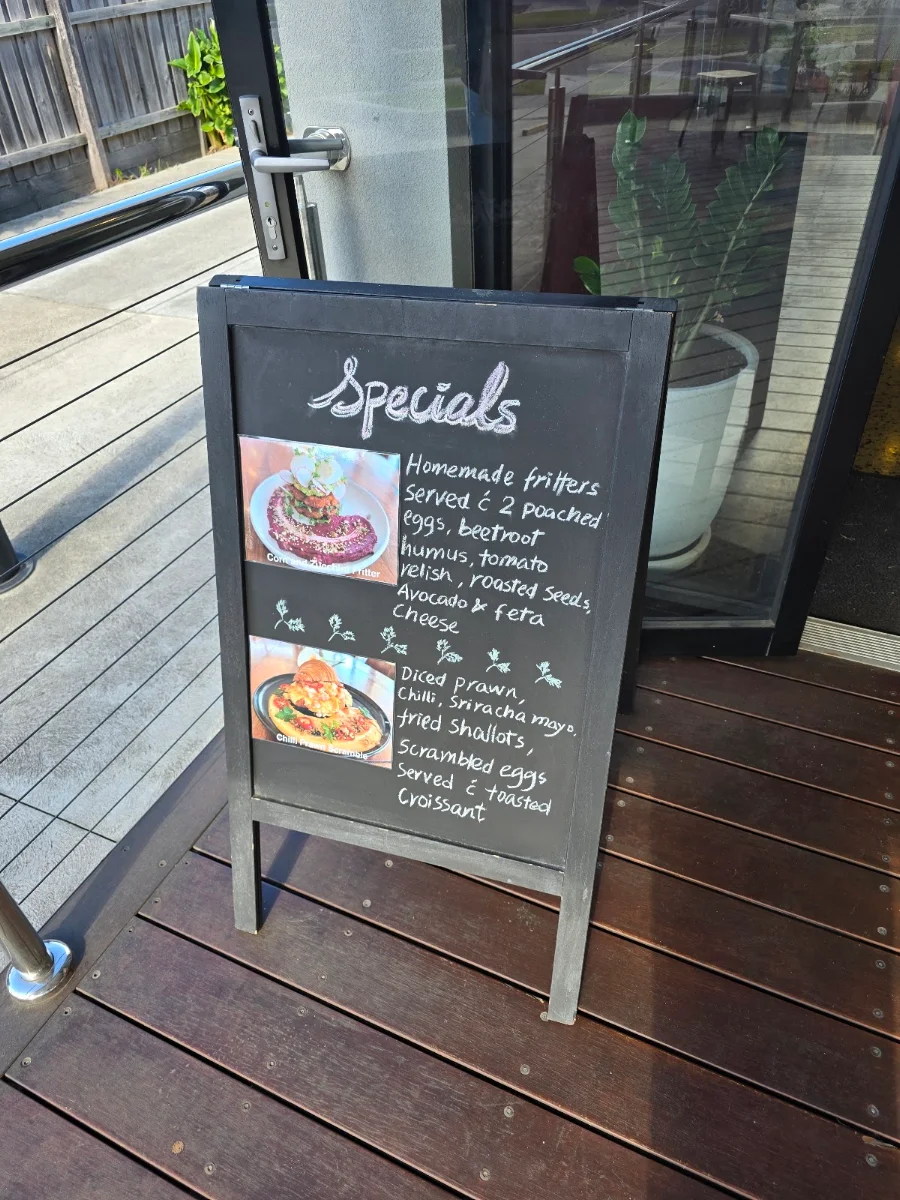 Specials
Homemade fritters
Served ċ 2 poached
eggs, beetroot
humus, tomato
relish, roasted Seeds,
Avocado & feta
Cheese
Fritter
Diced prawn,
Chilli, Sriracha mayo.
fried Shallots,
Scrambled eggs
Served ċ toasted
Croissant
Chilli Prawn Scramble